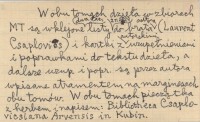 W obu tomach dzieła w zbiorach
MT są wklejone listy do brata (Laurent
Czaplovits) i kartki z uzupełnieniami
i poprawkami do tekstu dzieła, a
dalsze uzup. i popr. są przez autora
wpisane atramentem na marginesach
obu tomów. W obu tomach pieczątka
z herbem, z napisem: Bibliotheca Csaplo-
vicsiana Arvensis in Kubin.